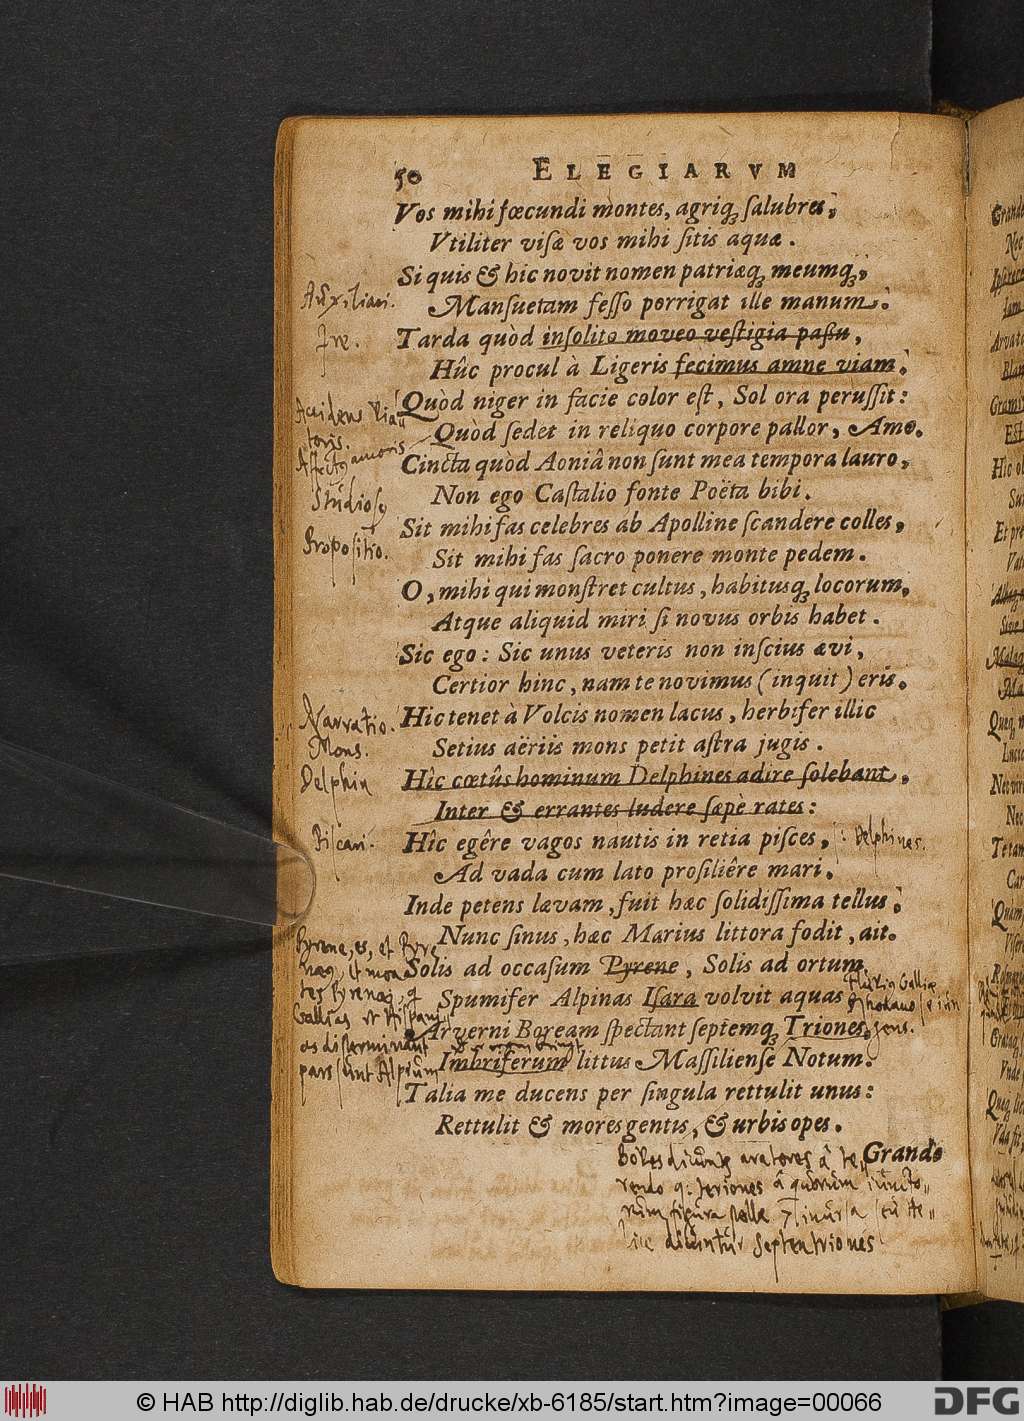 50 ELEGIARVM
Vos mihi fœcundi montes, agriq́; ſalubres,
Vtiliter viſæ vos mihi ſitis aquæ.
Si quis & hic novit nomen patriæq́; meumq́;,
Auxiliari.
Manſuetam feſſo porrigat ille manum.
Ire.
Tarda quòd inſolito moveo veſtigia paßu,
Hûc procul à Ligeris fecimus amne viam.
Quòd niger in facie color eſt, Sol ora peruſſit:
Accidens viatoris.
Quòd ſedet in reliquo corpore pallor, Amo.
Affectꝰ amoris
Cincta quòd Aoniâ non ſunt mea tempora lauro,
Non ego Caſtalio fonte Poëta bibi.
Studioſꝰ
Sit mihi fas celebres ab Apolline ſcandere colles,
Propoſitio.
Sit mihi fas ſacro ponere monte pedem.
O, mihi qui monſtret cultus, habitusq́; locorum,
Atque aliquid miri ſi novus orbis habet.
Sic ego: Sic unus veteris non inſcius ævi,
Certior hinc, nam te novimus (inquit) eris.
Narratio.
Hic tenet à Volcis nomen lacus, herbifer illic
Mons.
Setius aëriis mons petit aſtra jugis.
Delphin
Hîc cœtûs hominum Delphines adire ſolebant,
Inter & errantes ludere ſæpè rates:
Piſcari.
Hîc egêre vagos nautis in retia piſces, : Delphines.
Ad vada cum lato proſiliêre mari.
Inde petens lævam, fuit hæc ſolidiſſima tellus,
Nunc ſinus, hæc Marius littora fodit, ait.
Pyrene, es, et Pyre
Solis ad occaſum Pyrene, Solis ad ortum
Spumifer Alpinas Iſara volvit aquas
Fluviꝰ Galliæ
Arverni Boream ſpectant ſeptemq́; Triones,
Imbriferum littus Maſſilienſe Notum.
Talia me ducens per ſingula rettulit unus:
Rettulit & mores gentis, & urbis opes.
Grande
Boves dicunt aratores â te
rendo q. teriones â quorum iuncto
rum figura
dicuntur Septentriones
© HAB http://diglib.hab.de/drucke/xb-6185/start.htm?image=00066
DFG